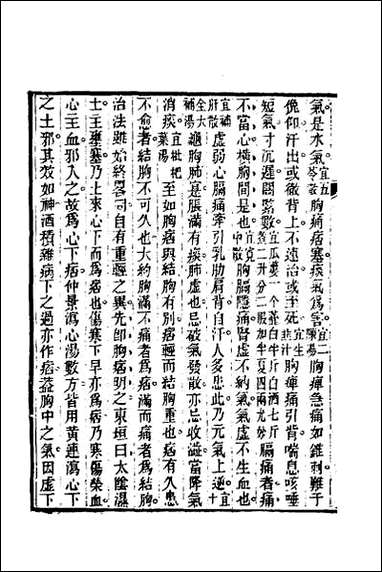 氣是水氣宜五苓散胸痞痞塞痰氣爲害宜二陳湯胸痺急痛如錐刺難于
俛仰汗出或徹背上不速治或至死宜生韭汁胸痺痛引背喘息咳唾
短氣寸沉遲關緊數宜瓜蔞一个薤白半斤白酒七斤煮二升分二服加半夏四兩尤妙膈痛者痛
不當心橫胸間是也胸膈隱痛腎虛不納氣氣虛不生血也
宜補肝散虛弱心膈痛牽引乳肋肩背自汗人多患此乃元氣上逆宜十全大補湯
龜胸肺是脹滿有痰肺虛也忌破氣發散亦忌收澁當降氣
消痰宜枇杷葉湯至如胸痞與結胸有別痞輕而結胸重也痞有久患
不愈者結胸不可久也大約胸滿不痛者爲痞滿而痛者爲結胸
治法雖始終畧同自有重輕之異先卽胸痞明之東垣曰太陰濕
土主壅塞乃土來心下而爲痞也傷寒下早亦爲痞乃寒傷榮血
心主血邪入之故爲心下痞仲景瀉心湯數方皆用黃連瀉心下
之土邪其效如神酒積雜病下之過亦作痞蓋胸中之氣因虛下